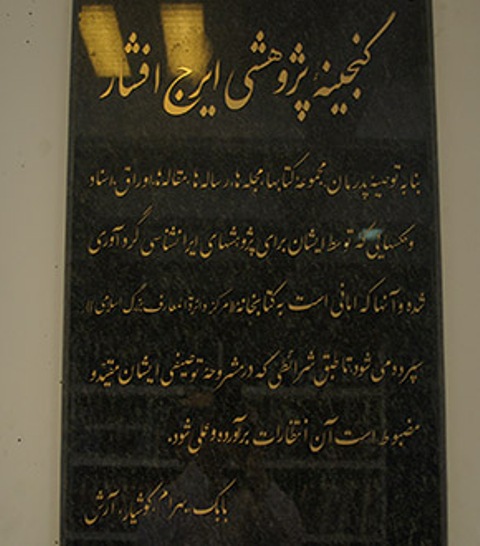 گنجینهٔ پژوهشی ایرج افشار
بنا به توصیهٔ پدرمان، مجموعهٔ کتابها، مجله‌ها، رساله‌ها، مقاله‌ها، اوراق، اسناد
و عکسهایی که توسط ایشان برای پژوهشهای ایرانشناسی گردآوری
شده و آنها که امانی است به کتابخانهٔ ((مرکز دائرة المعارف بزرگ اسلامی))
سپرده می شود تا طبق شرائطی که در مشروحهٔ توصیفی ایشان مقید و
مضبوط است آن انتظارات برآورده و عملی شود.
بابک، بهرام، کوشیار، آرش